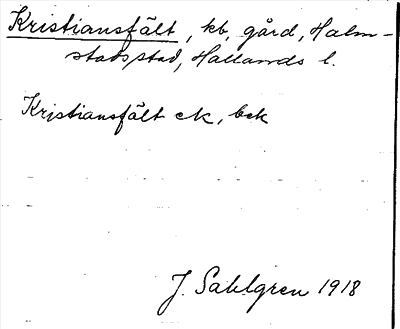 Kristiansfält, kb, gård, Halm-
stads stad, Hallands l.
Kristiansfält ek, bek
J. Sahlgren 1918